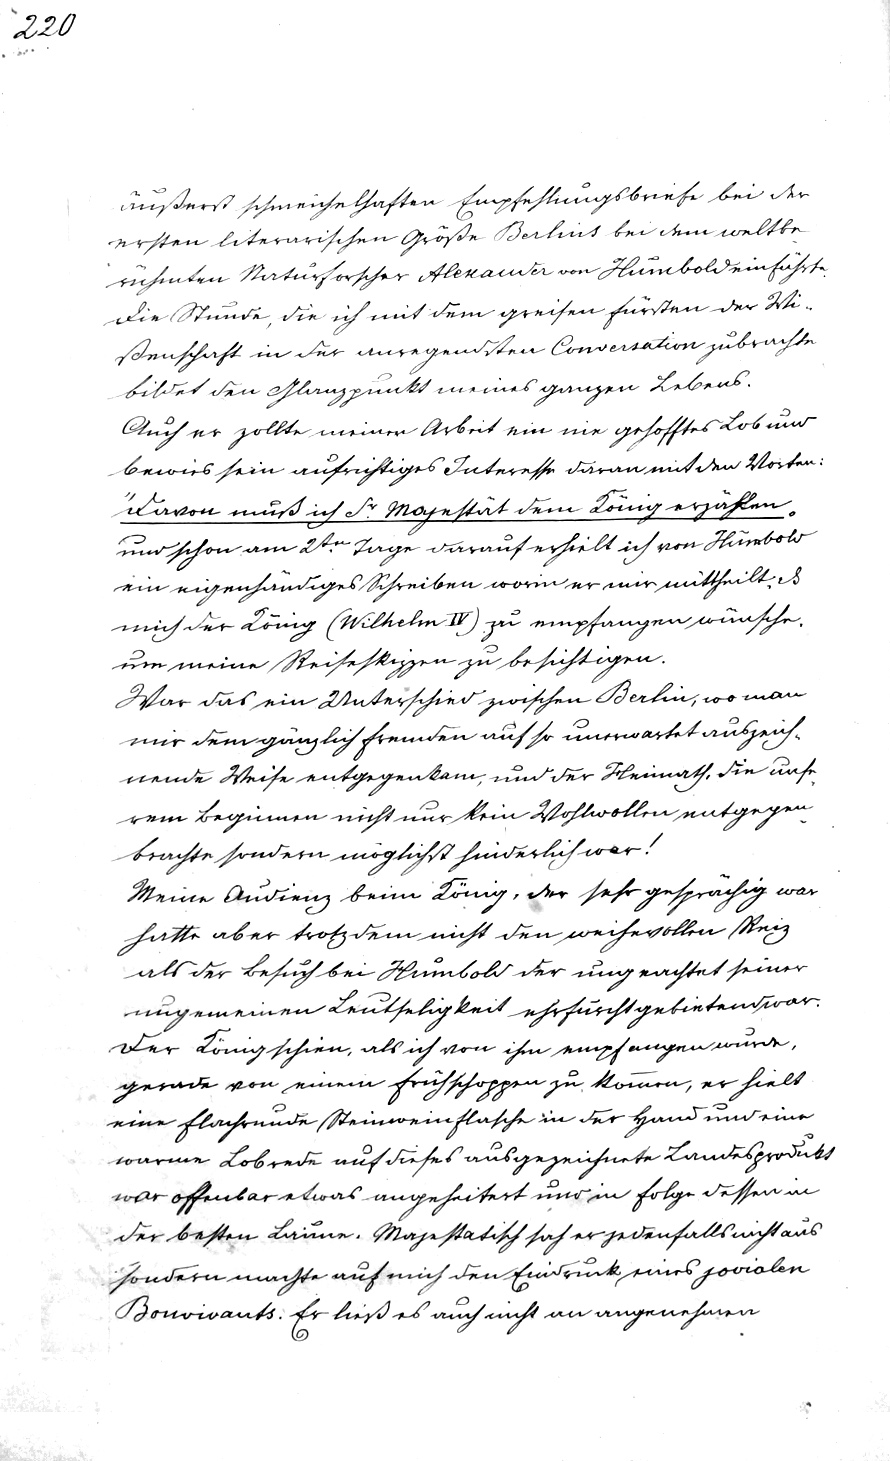 220
äußerst schmeichelhaften Empfehlungsbriefe bei der
ersten literarischen Größe Berlins bei dem weltbe
rühmten Naturforscher Alexander von Humbold einführte.
Die Stunde, die ich mit dem greisen Fürsten der Wi-
ßenschaft in der anregendsten Conversation zubrachte
bildet den Glanzpunkt meines ganzen Lebens.
Auch er zollte meiner Arbeit ein nie gehofftes Lob und
bewies sein aufrichtiges Interesse daran mit den Worten:
"Davon muß ich Sr. Majestät dem König erzählen.
und schon am 2ten Tage darauf erhielt ich von Humbold
ein eigenhändiges Schreiben worin er mir mittheilt,
mich der König (Wilhelm IV) zu empfangen wünsche,
um meine Reiseskizzen zu besichtigen.
War das ein Unterschied zwischen Berlin, wo man
mir dem gänzlich Fremden auf so unerwartet auszeich-
nende Weise entgegenkam, und der Heimath, die unse-
rem Beginnen nicht nur kein Wohlwollen entgegen-
brachte sondern möglichst hinderlich war!
Meine Audienz beim König, der sehr gesprächig war
hatte aber trotzdem nicht den weihevollen Reiz
als der Besuch bei Humbold der ungeachtet seiner
ungemeinen Leutseligkeit ehrfurchtgebietend war.
Der König schien, als ich von ihm empfangen wurde,
gerade von einem Frühschoppen zu kom̅en, er hielt
eine flachrunde Steinweinflasche in der Hand und eine
warme Lobrede auf dieses ausgezeichnete Landesprodukt
war offenbar etwas angeheitert und in Folge dessen in
der besten Laune. Majestatisch sah er jedenfalls nicht aus
sondern machte auf mich den Eindruck eines jovialen
Bonvivants. Er ließ es auch nicht an angenehmen